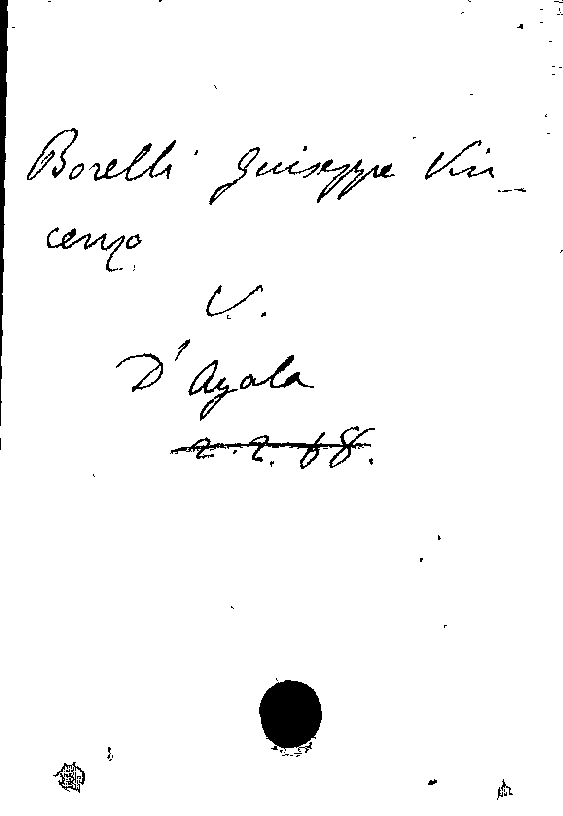 Borelli Giuseppe Vin_
cenzo
V.
D'Ayala
2.2.68.